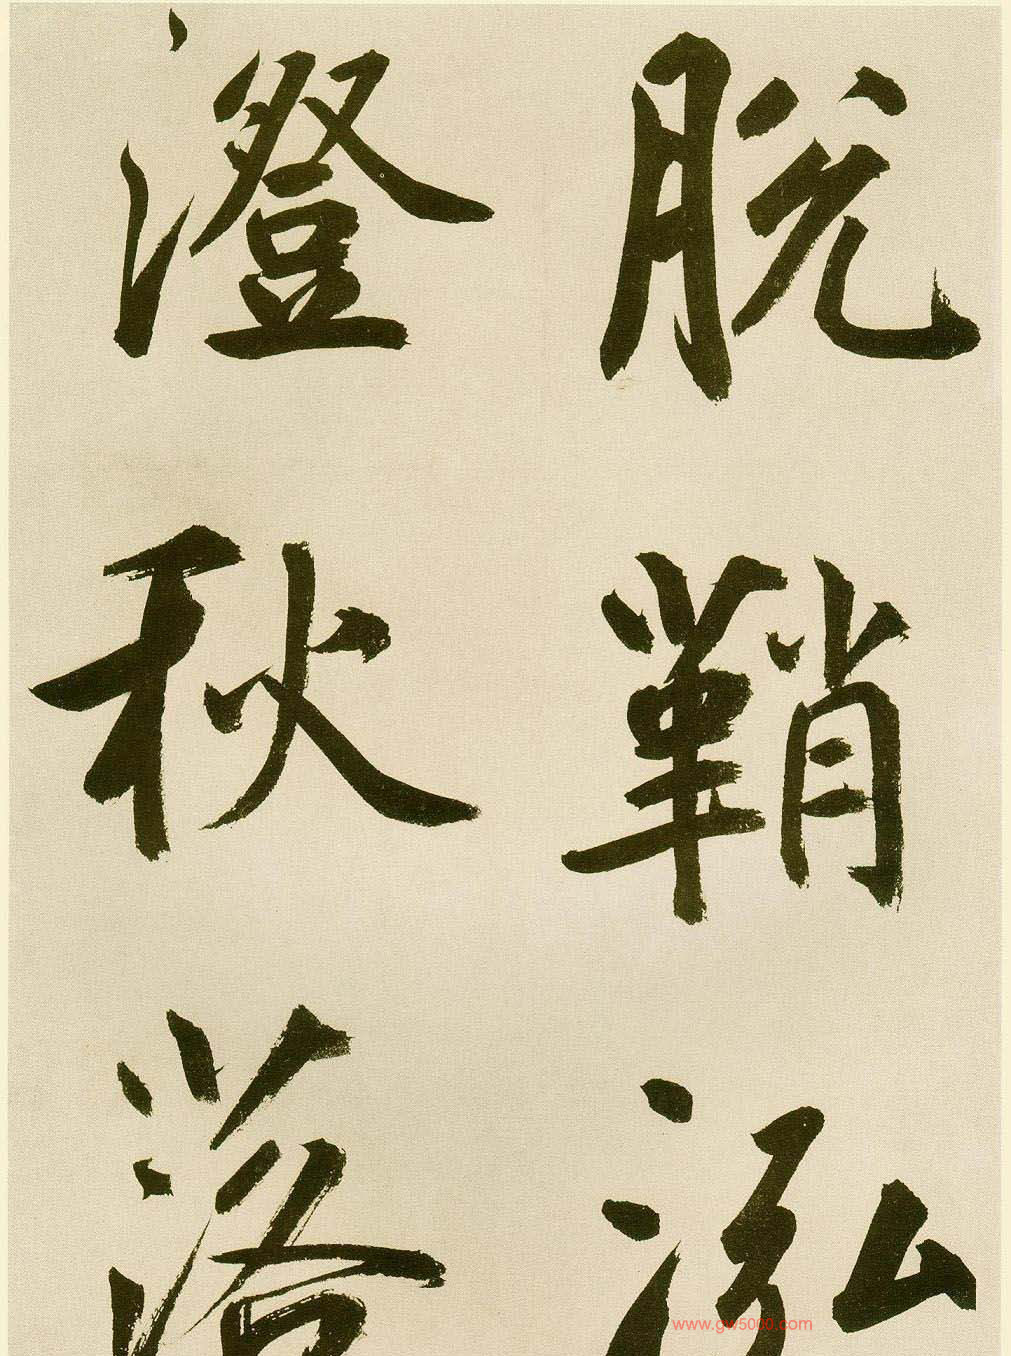 脱鞘泓
澄秋落
www.gw5000.com